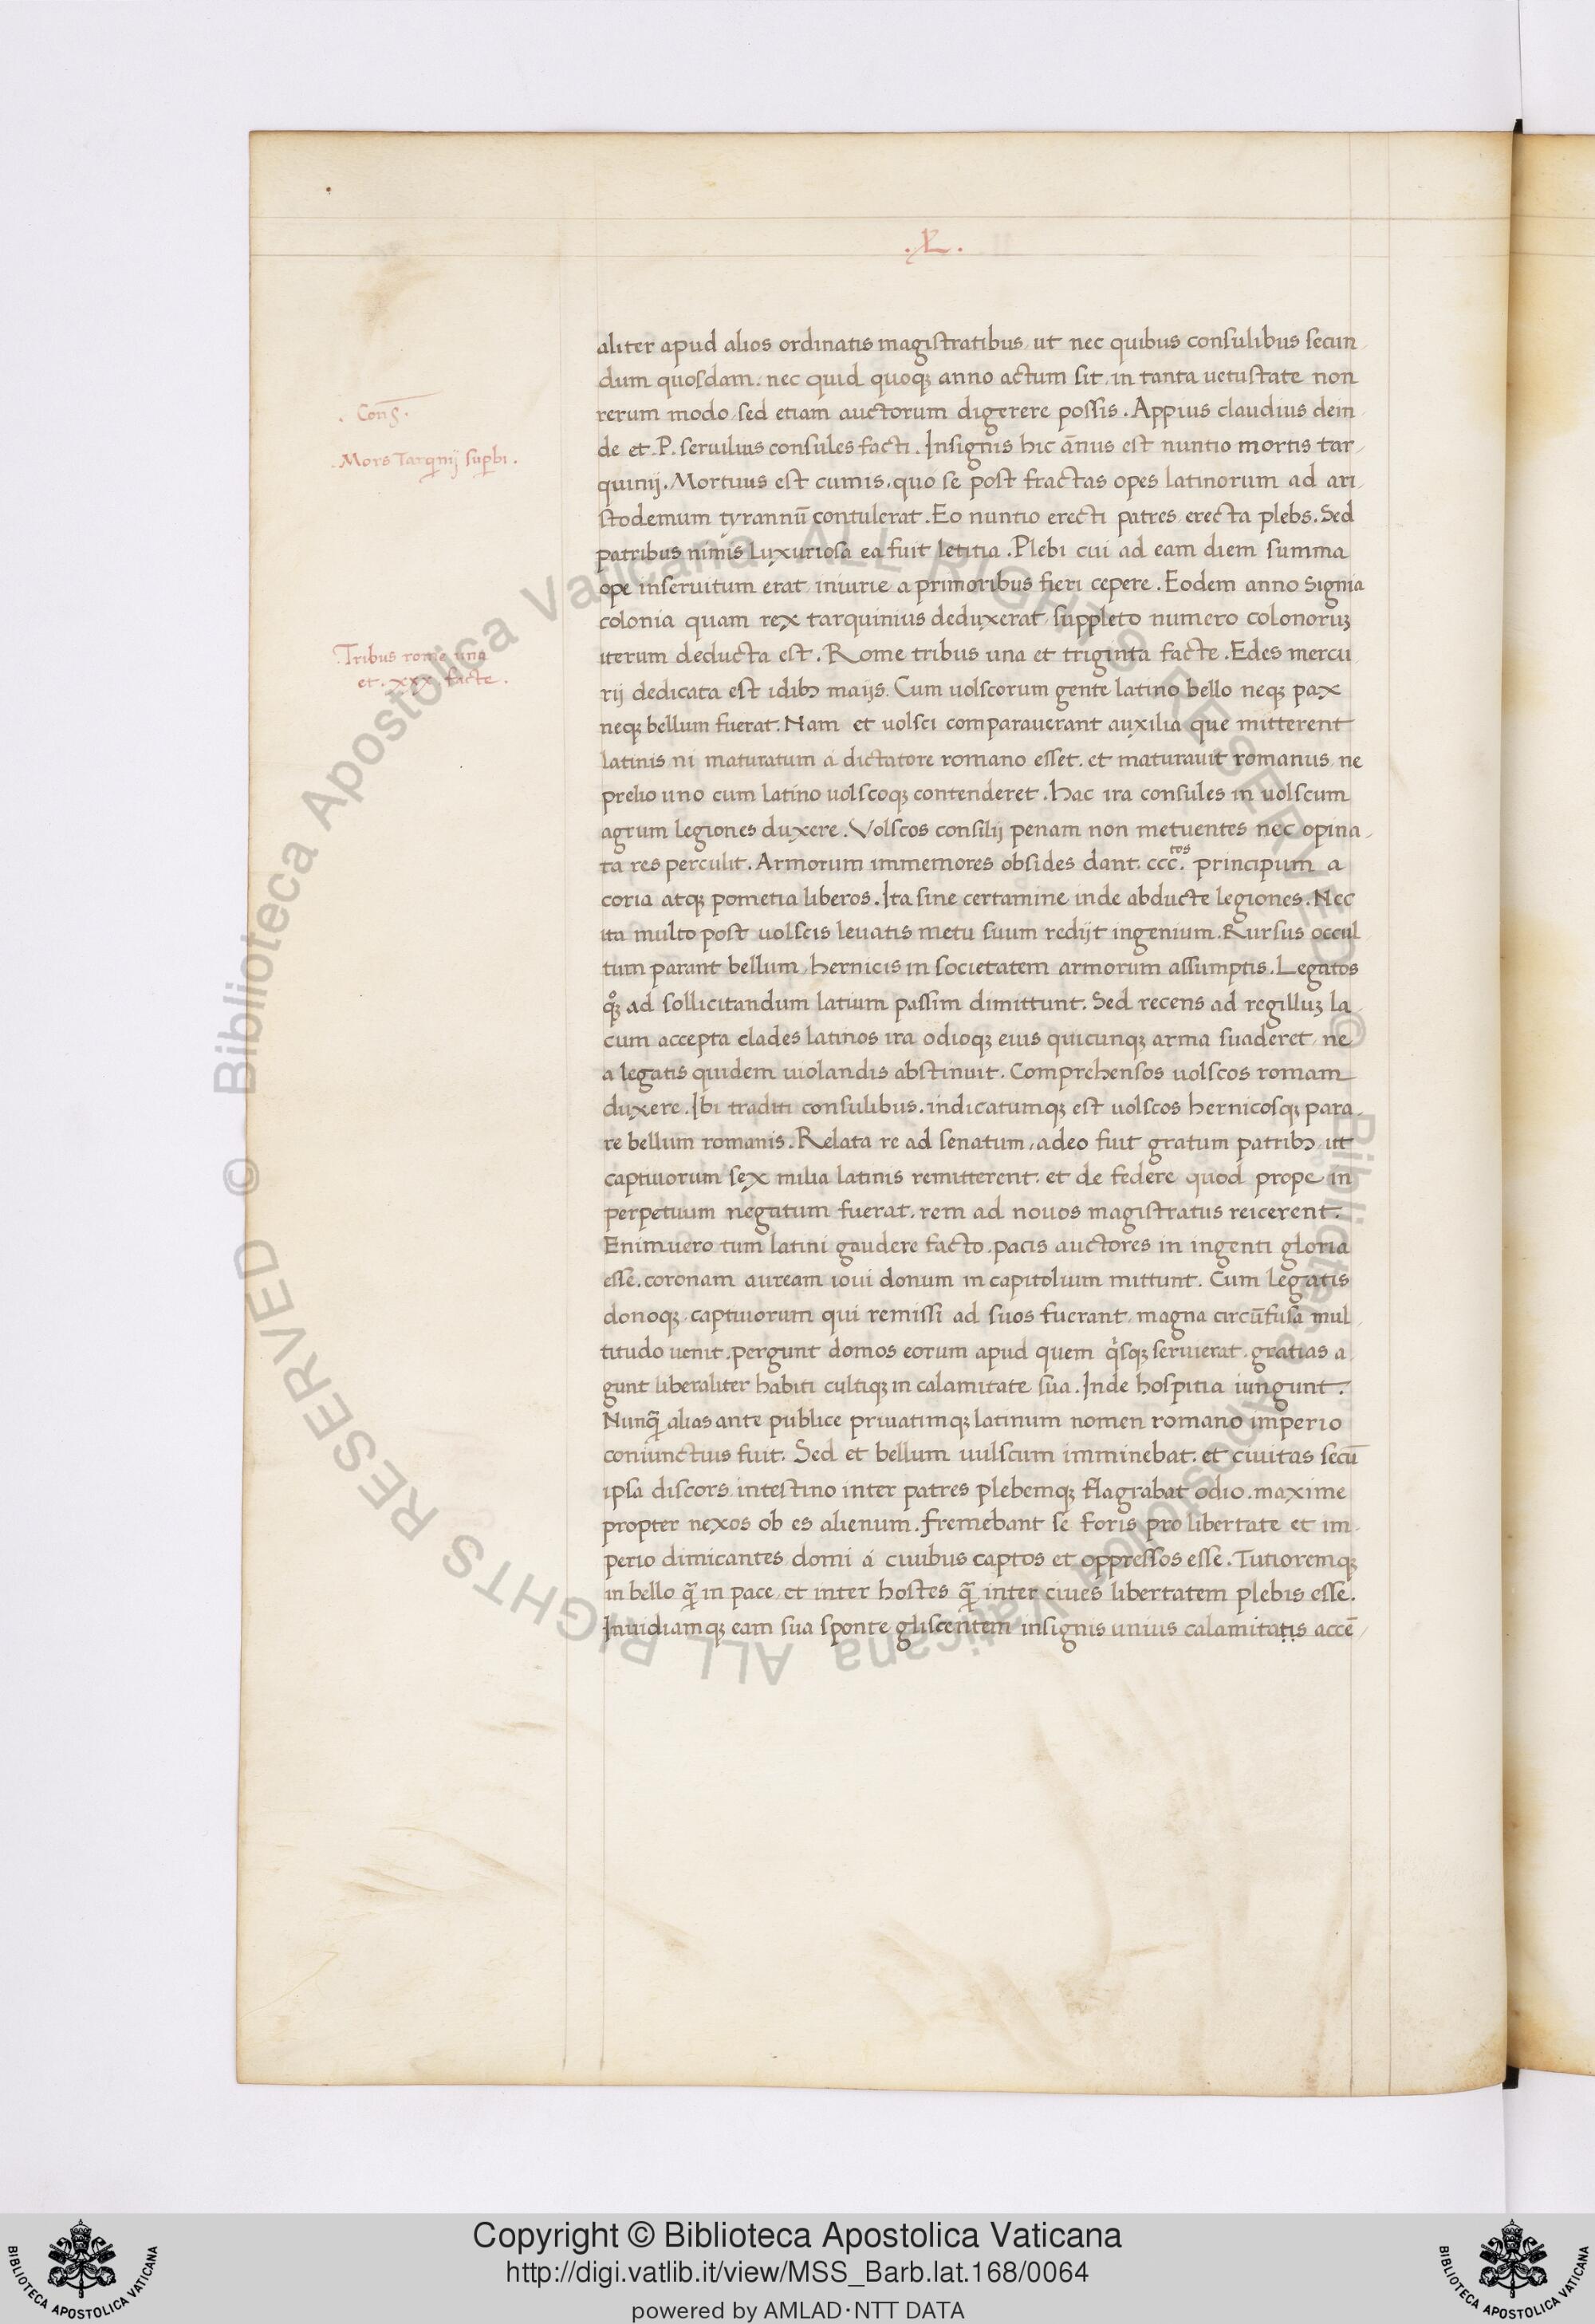 .L.
aliter apud alios ordinatis magistratibus, ut nec quibus consulibus secun
dum quosdam. nec quid quoqꝫ anno actum sit, in tanta uetustate non
rerum modo, sed etiam auctorum digerere possis. Appius claudius dein
. Conſ̄.
de et. P. seruilius consules facti. Insignis hic ānnus est nuntio mortis tar
. Mors Tarqnij supbi .
quinij. Mortuus est cumis, quo se post fractas opes latinorum ad ari
stodemum tyrannū contulerat. Eo nuntio erecti patres, erecta plebs. Sed
patribus nimis luxuriosa ea fuit letitia. Plebi cui ad eam diem summa
ope inseruitum erat, iniurie a primoribus fieri cepere. Eodem anno Signia
colonia quam rex tarquinius deduxerat, suppleto numero colonoruꝫ
iterum deducta est. Rome tribus una et triginta facte. Edes mercu
. Tribus rome una
et. xxx. facte .
rij dedicata est idibꝫ maijs. Cum uolscorum gente latino bello neqꝫ pax
neqꝫ bellum fuerat. Nam et uolsci comparauerant auxilia que mitterent
latinis, ni maturatum á dictatore romano esset. et maturauit romanus, ne
prelio uno cum latino uolscoqꝫ contenderet. Hac ira consules in uolscum
agrum legiones duxere. Volscos consilij penam non metuentes nec opina
ta res perculit. Armorum immemores obsides dant. cccᵗᵒˢ. principum a
coria atqꝫ pometia liberos. Ita sine certamine inde abducte legiones. Nec
ita multo post uolscis leuatis metu suum redijt ingenium. Rursus occul
tum parant bellum, hernicis in societatem armorum assumptis. Legatos
qͦꝫ ad sollicitandum latium passim dimittunt. Sed recens ad regilluꝫ la
cum accepta clades latinos ira odioqꝫ eius quicunqꝫ arma suaderet, ne
a legatis quidem uiolandis abstinuit. Comprehensos uolscos romam
duxere. Ibi traditi consulibus. indicatumqꝫ est uolscos hernicosqꝫ para
re bellum romanis. Relata re ad senatum, adeo fuit gratum patribꝫ, ut
captiuorum sex milia latinis remitterent. et de federe quod prope in
perpetuum negatum fuerat, rem ad nouos magistratus reicerent.
Enimuero tum latini gaudere facto. pacis auctores in ingenti gloria
esse. coronam auream ioui donum in capitolium mittunt. Cum legatis
donoqꝫ, captiuorum qui remissi ad suos fuerant, magna circūfusa mul
titudo uenit. pergunt domos eorum apud quem qͥsqꝫ seruierat. gratias a
gunt liberaliter habiti cultiqꝫ in calamitate sua. Inde hospitia iungunt.
Nunqꝫ̄ alias ante publice priuatimqꝫ latinum nomen romano imperio
coniunctius fuit. Sed et bellum uulscum imminebat. et ciuitas secū
ipsa discors, intestino inter patres plebemqꝫ flagrabat odio. maxime
propter nexos ob es alienum. fremebant se foris pro libertate et im
perio dimicantes, domi á ciuibus captos et oppressos esse. Tutioremqꝫ
in bello qꝫ̄ in pace, et inter hostes qꝫ̄ inter ciues libertatem plebis esse.
Inuidiamqꝫ eam sua sponte gliscentem insignis unius calamitatis accē
© Biblioteca Apostolica Vaticana ALL RIGHTS RESERVED
© Biblioteca Apostolica Vaticana ALL RIGHTS RESERVED
Copyright © Biblioteca Apostolica Vaticana
http://digi.vatlib.it/view/MSS_Barb.lat.168/0064
powered by AMLAD·NTT DATA
BIBLIOTECA APOSTOLICA VATICANA
BIBLIOTECA APOSTOLICA VATICANA